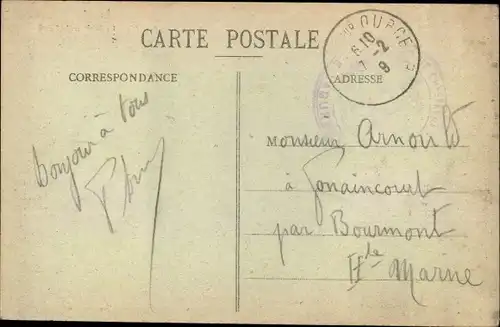 CARTE POSTALE
CORRESPONDANCE
ADRESSE
Bonjour à tous
Monsieur Arnould
à Gonaincourt
par Bourmont
Hte Marne